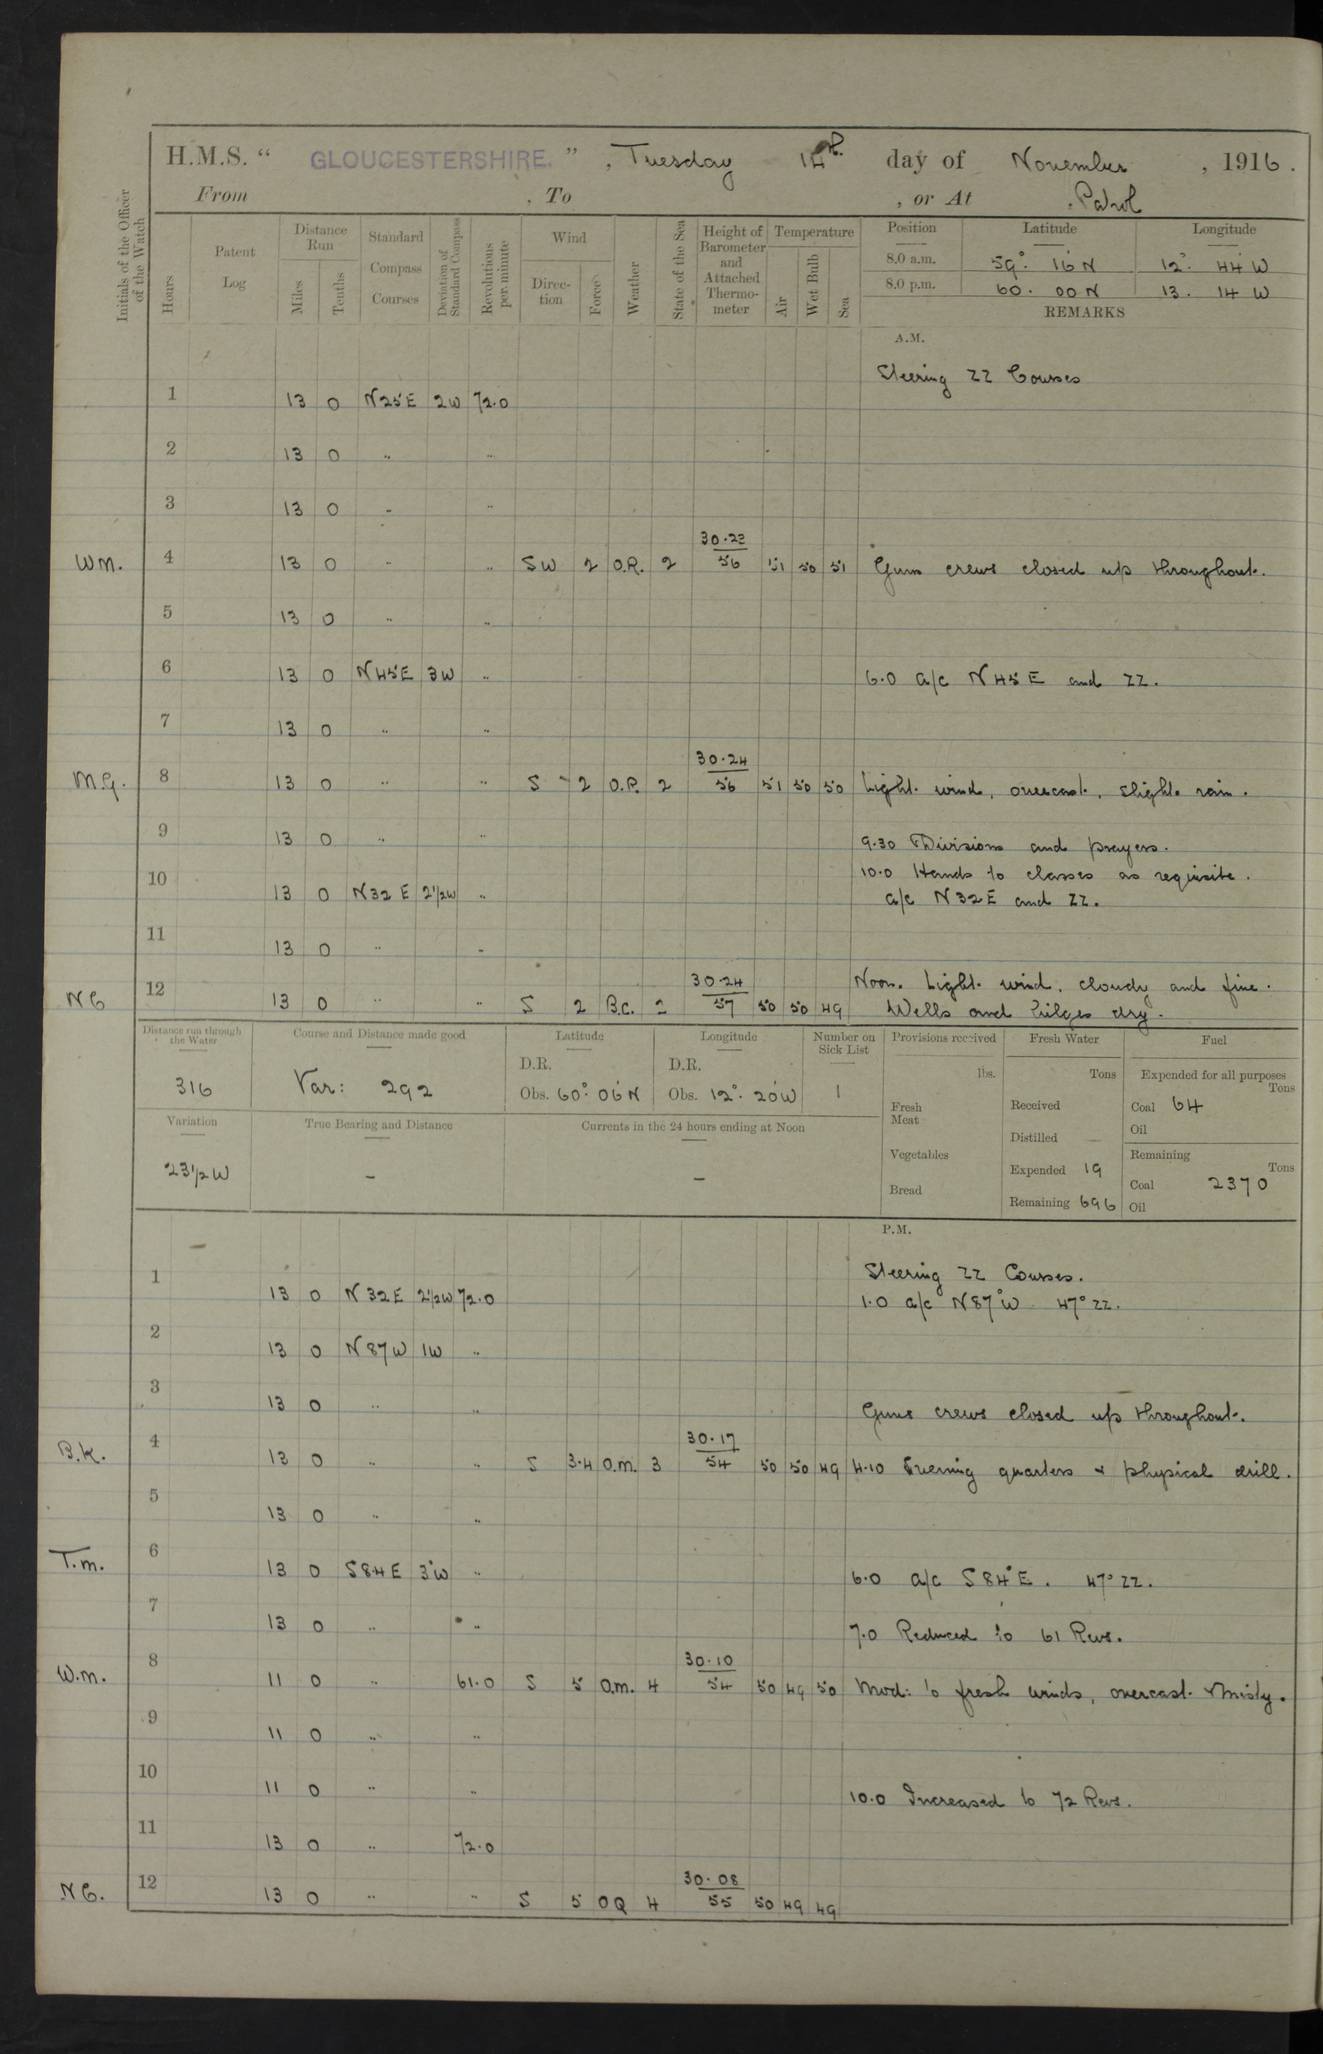 H.M.S. “ GLOUCESTERSHIRE. ” , Tuesday 14th. day of November , 1916 .
From , To , or At Patrol
Initials of the Officer of the Watch
Hours
Patent Log
Distance Run
Miles
Tenths
Standard Compass Courses
Deviation of Standard Compass
Revolutions per minute
Wind
Direc-tion
Force
Weather
State of the Sea
Height of Barometer and Attached Thermo-meter
Temperature
Air
Wet Bulb
Sea
Position Latitude Longitude
8.0 a.m. 59° 16' N 12° 44' W
8.0 p.m. 60 . 00 N 13 . 14 W
REMARKS
A.M.
Steering ZZ Courses
1 13 0 N25E 2W 72.0
2 13 0 " "
3 13 0 " "
30.23
WM. 4 13 0 " " SW 2 O.R. 2 56 51 50 51 Guns crews closed up throughout.
5 13 0 " "
6 13 0 N45E 3W " 6.0 a/c N45E and ZZ.
7 13 0 " "
30.24
M.G. 8 13 0 " " S 2 O.P. 2 56 51 50 50 Light wind, overcast, slight rain.
9 13 0 " " 9.30 Divisions and prayers.
10.0 Hands to classes as requisite.
10 13 0 N32E 2½W " a/c N32E and ZZ.
11 13 0 " "
30.24 Noon. Light wind, cloudy and fine.
NC 12 13 0 " " S 2 B.C. 2 57 50 50 49 Wells and bilges dry.
Distance run through the Water
316
Course and Distance made good
Var: 292
Latitude
D.R.
Obs. 60° 06' N
Longitude
D.R.
Obs. 12° 20' W
Number on Sick List
1
Variation
23½W
True Bearing and Distance
-
Currents in the 24 hours ending at Noon
-
Provisions received
lbs.
Fresh Meat
Vegetables
Bread
Fresh Water
Tons
Received
Distilled —
Expended 19
Remaining 696
Fuel
Expended for all purposes
Tons
Coal 64
Oil
Remaining
Tons
Coal 2370
Oil
P.M.
Steering ZZ Courses.
1 13 0 N32E 2½W 72.0 1.0 a/c N87°W 47° ZZ.
2 13 0 N87W 1W "
3 13 0 " " Guns crews closed up throughout.
30.17
B.K. 4 13 0 " " S 3.4 O.m. 3 54 50 50 49 4.10 Evening quarters & physical drill.
5 13 0 " "
T.m. 6 13 0 S84E 3°W " 6.0 a/c S84°E. 47° ZZ.
7 13 0 " " 7.0 Reduced to 61 Revs.
30.10
W.m. 8 11 0 " 61.0 S 5 O.m. 4 54 50 49 50 Mod: to fresh winds, overcast & misty.
9 11 0 " "
10 11 0 " " 10.0 Increased to 72 Revs.
11 13 0 " 72.0
30.08
NC. 12 13 0 " " S 5 OQ 4 55 50 49 49